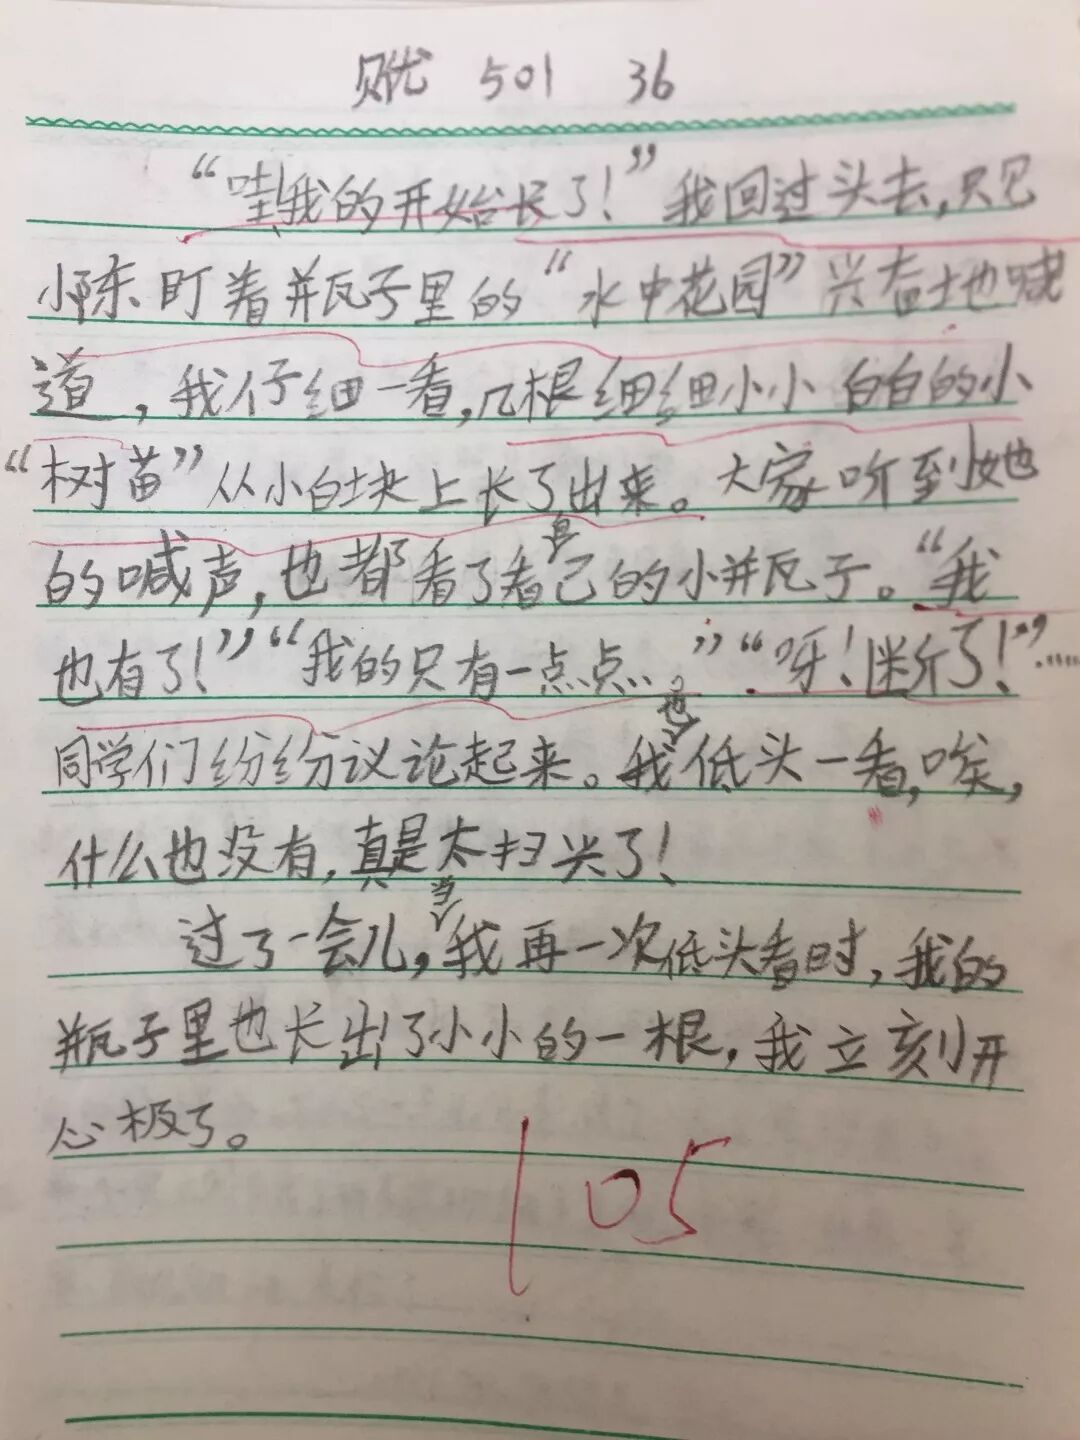 501 36
“哇!我的开始长了!”我回过头去,只见
小陈盯着瓶子里的“水中花园”兴奋地喊
道,我仔细一看,几根细细小小白白的小
“树苗”从小白块上长了出来。大家听到她
的喊声,也都看了看自己的小瓶子。“我
也有了!”“我的只有一点点…”“呀!断了!”……
同学们纷纷议论起来。我也低头一看,唉,
什么也没有,真是太扫兴了!
过了一会儿,当我再一次低头看时,我的
瓶子里也长出了小小的一根,我立刻开
心极了。
105